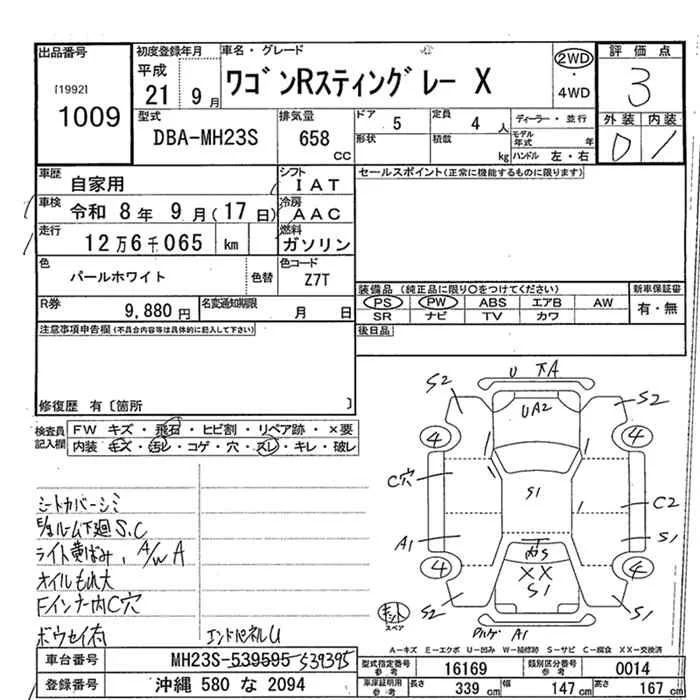 出品番号
[1992]
1009
初度登録年月
平成
21 9月
車名・グレード
ワゴンRスティングレー X
2WD
・
4WD
評価点
3
外装 内装
0 1
型式
DBA-MH23S
排気量
658
CC
ドア 5
定員 4 人
形状
積載
kg
ディーラー・並行
モデル年式 年
ハンドル 左・右
車歴
自家用
シフト
IAT
セールスポイント(正常に機能するものに限ります)
車検 令和 8年 9月(17日)
冷房
AAC
走行
12万6千065 km
燃料
ガソリン
色
パールホワイト
色替
色コード
Z7T
装備品 (純正品に限り〇をつけてください)
新車保証書
PS PW ABS エアB AW
有・無
SR ナビ TV カワ
R券
9,880円
名変通知期限
月 日
後日品
注意事項申告欄(不具合内容等は具体的に記入して下さい)
修復歴 有〔箇所 〕
検査員
記入欄
FW キズ・飛石・ヒビ割・リペア跡・×要
内装・キズ・汚レ・コゲ・穴・スレ・キレ・破レ
シートカバーシミ
下廻S.C
ライト黄ばみ、A/W A
オイルもれ大
Fインナー内C穴
ボウセイ有
エンドパネルU
U
A
S2
S2
UA2
4
4
C穴
S1
C2
A1
S1
4
4
XX
S1
S2
S1
A1
キット
スペア
A−キズ E−エクボ U−凹み W−補修跡 S−サビ C−腐食 XX−交換済
車台番号
MH23S-539595 539395
型式指定番号
参考
16169
類別区分番号
参考
0014
登録番号
沖縄 580 な 2094
車庫証明用
参考
長さ 339 cm
幅 147 cm
高さ 167 cm